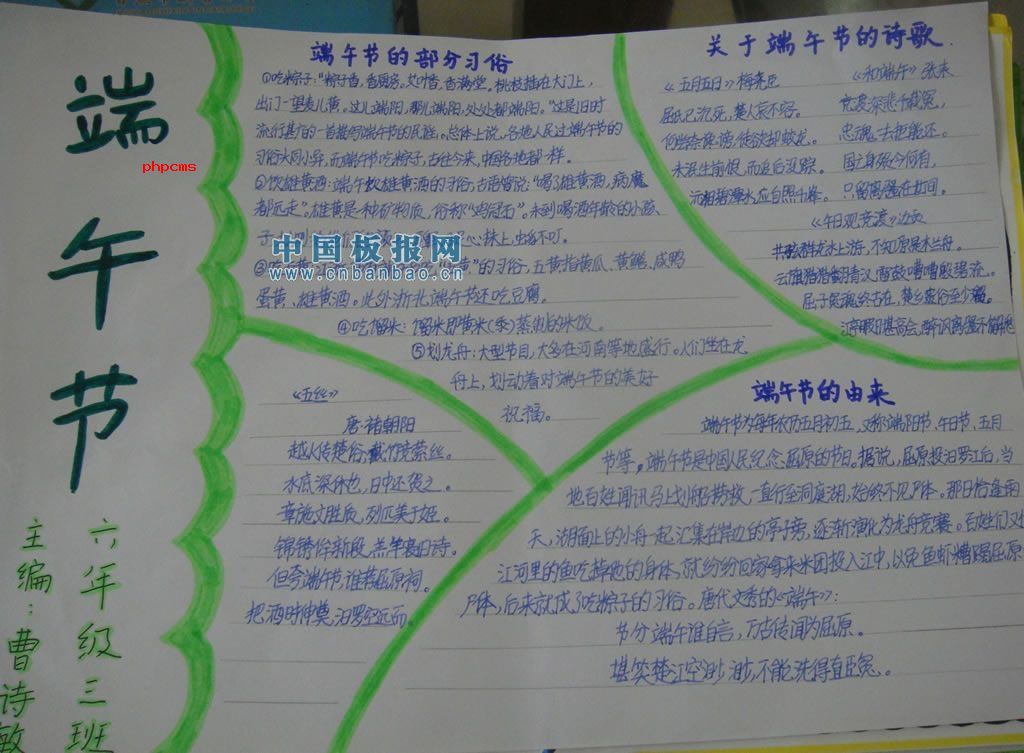 端午节
phpcms
六年级三班
主编:曹诗敏
端午节的部分习俗
①吃粽子:"粽子香,香厨房。艾叶香,香满堂。桃枝插在大门上,
出门一望麦儿黄。这儿端阳,那儿端阳,处处都端阳。"这是旧时
流行甚广的一首描写端午节的民谣。总体上说,各地人民过端午节的
习俗大同小异,而端午节吃粽子,古往今来,中国各地都一样。
②饮雄黄酒:端午饮雄黄酒的习俗,古语曾说:"喝了雄黄酒,病魔
都远走"。雄黄是种矿物质,俗称"鸡冠石"。未到喝酒年龄的小孩
心抹上,虫蛇不叮。
中国板报网
www.cnbanbao.cn
黄"的习俗,五黄指黄瓜、黄鳝、咸鸭
蛋黄、雄黄酒。此外浙北端午节还吃豆腐。
④吃馏米:馏米即黄米(黍)蒸出的米饭。
⑤划龙舟:大型节目,大多在河南等地盛行。人们坐在龙
舟上,划动着对端午节的美好
祝福。
关于端午节的诗歌
《五月五日》梅尧臣
屈氏已沉死,楚人哀不容。
何尝奈谗谤,徒欲却蛟龙。
未泯生前恨,而追后没踪。
沅湘碧潭水,应自照千峰。
《和端午》张耒
竞渡深悲千载冤,
忠魂一去讵能还。
国亡身殒今何有,
只留离骚在世间。
《午日观竞渡》边贡
共骇群龙水上游,不知原是木兰舟。
云旗猎猎翻青汉,雷鼓嘈嘈殷碧流。
屈子冤魂终古在,楚乡遗俗至今留。
江亭暇日堪高会,醉讽离骚不解愁
《五丝》
唐·褚朝阳
越人传楚俗,截竹竞萦丝。
水底深休也,日中还贺之。
章施文胜质,列匹美于姬。
锦绣侔新段,羔羊寝旧诗。
但夸端午节,谁荐屈原祠。
把酒时伸奠,汨罗空远而。
端午节的由来
端午节为每年农历五月初五,又称端阳节、午日节、五月
节等。端午节是中国人民纪念屈原的节日。据说,屈原投汨罗江后,当
地百姓闻讯马上划船捞救,一直行至洞庭湖,始终不见尸体。那日恰逢雨
天,湖面上的小舟一起汇集在岸边的亭子旁,逐渐演化为龙舟竞赛。百姓们又怕
江河里的鱼吃掉他的身体,就纷纷回家拿来米团投入江中,以免鱼虾糟蹋屈原
尸体,后来就成了吃粽子的习俗。唐代文秀的《端午》:
节分端午谁自言,万古传闻为屈原。
堪笑楚江空渺渺,不能洗得直臣冤。